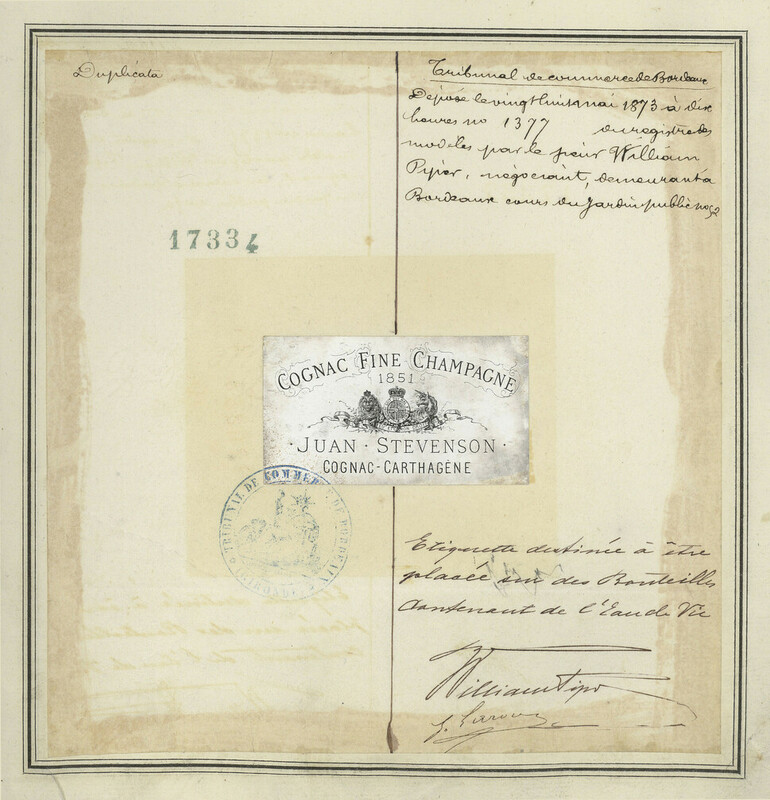 Duplicata
Tribunal de commerce de Bordeaux
Déposé le vingt huit mai 1873 à dix
heures no 1377 du registre des
modèles par le sieur William
Pipier, négociant, demeurant à
Bordeaux cours du Jardin public no 52
17334
COGNAC FINE CHAMPAGNE
1851
· JUAN · STEVENSON ·
COGNAC - CARTHAGÈNE
TRIBUNAL DE COMMERCE DE BORDEAUX
GIRONDE
Etiquette destinée à être
placée sur des Bouteilles
Contenant de l'Eau de Vie
William